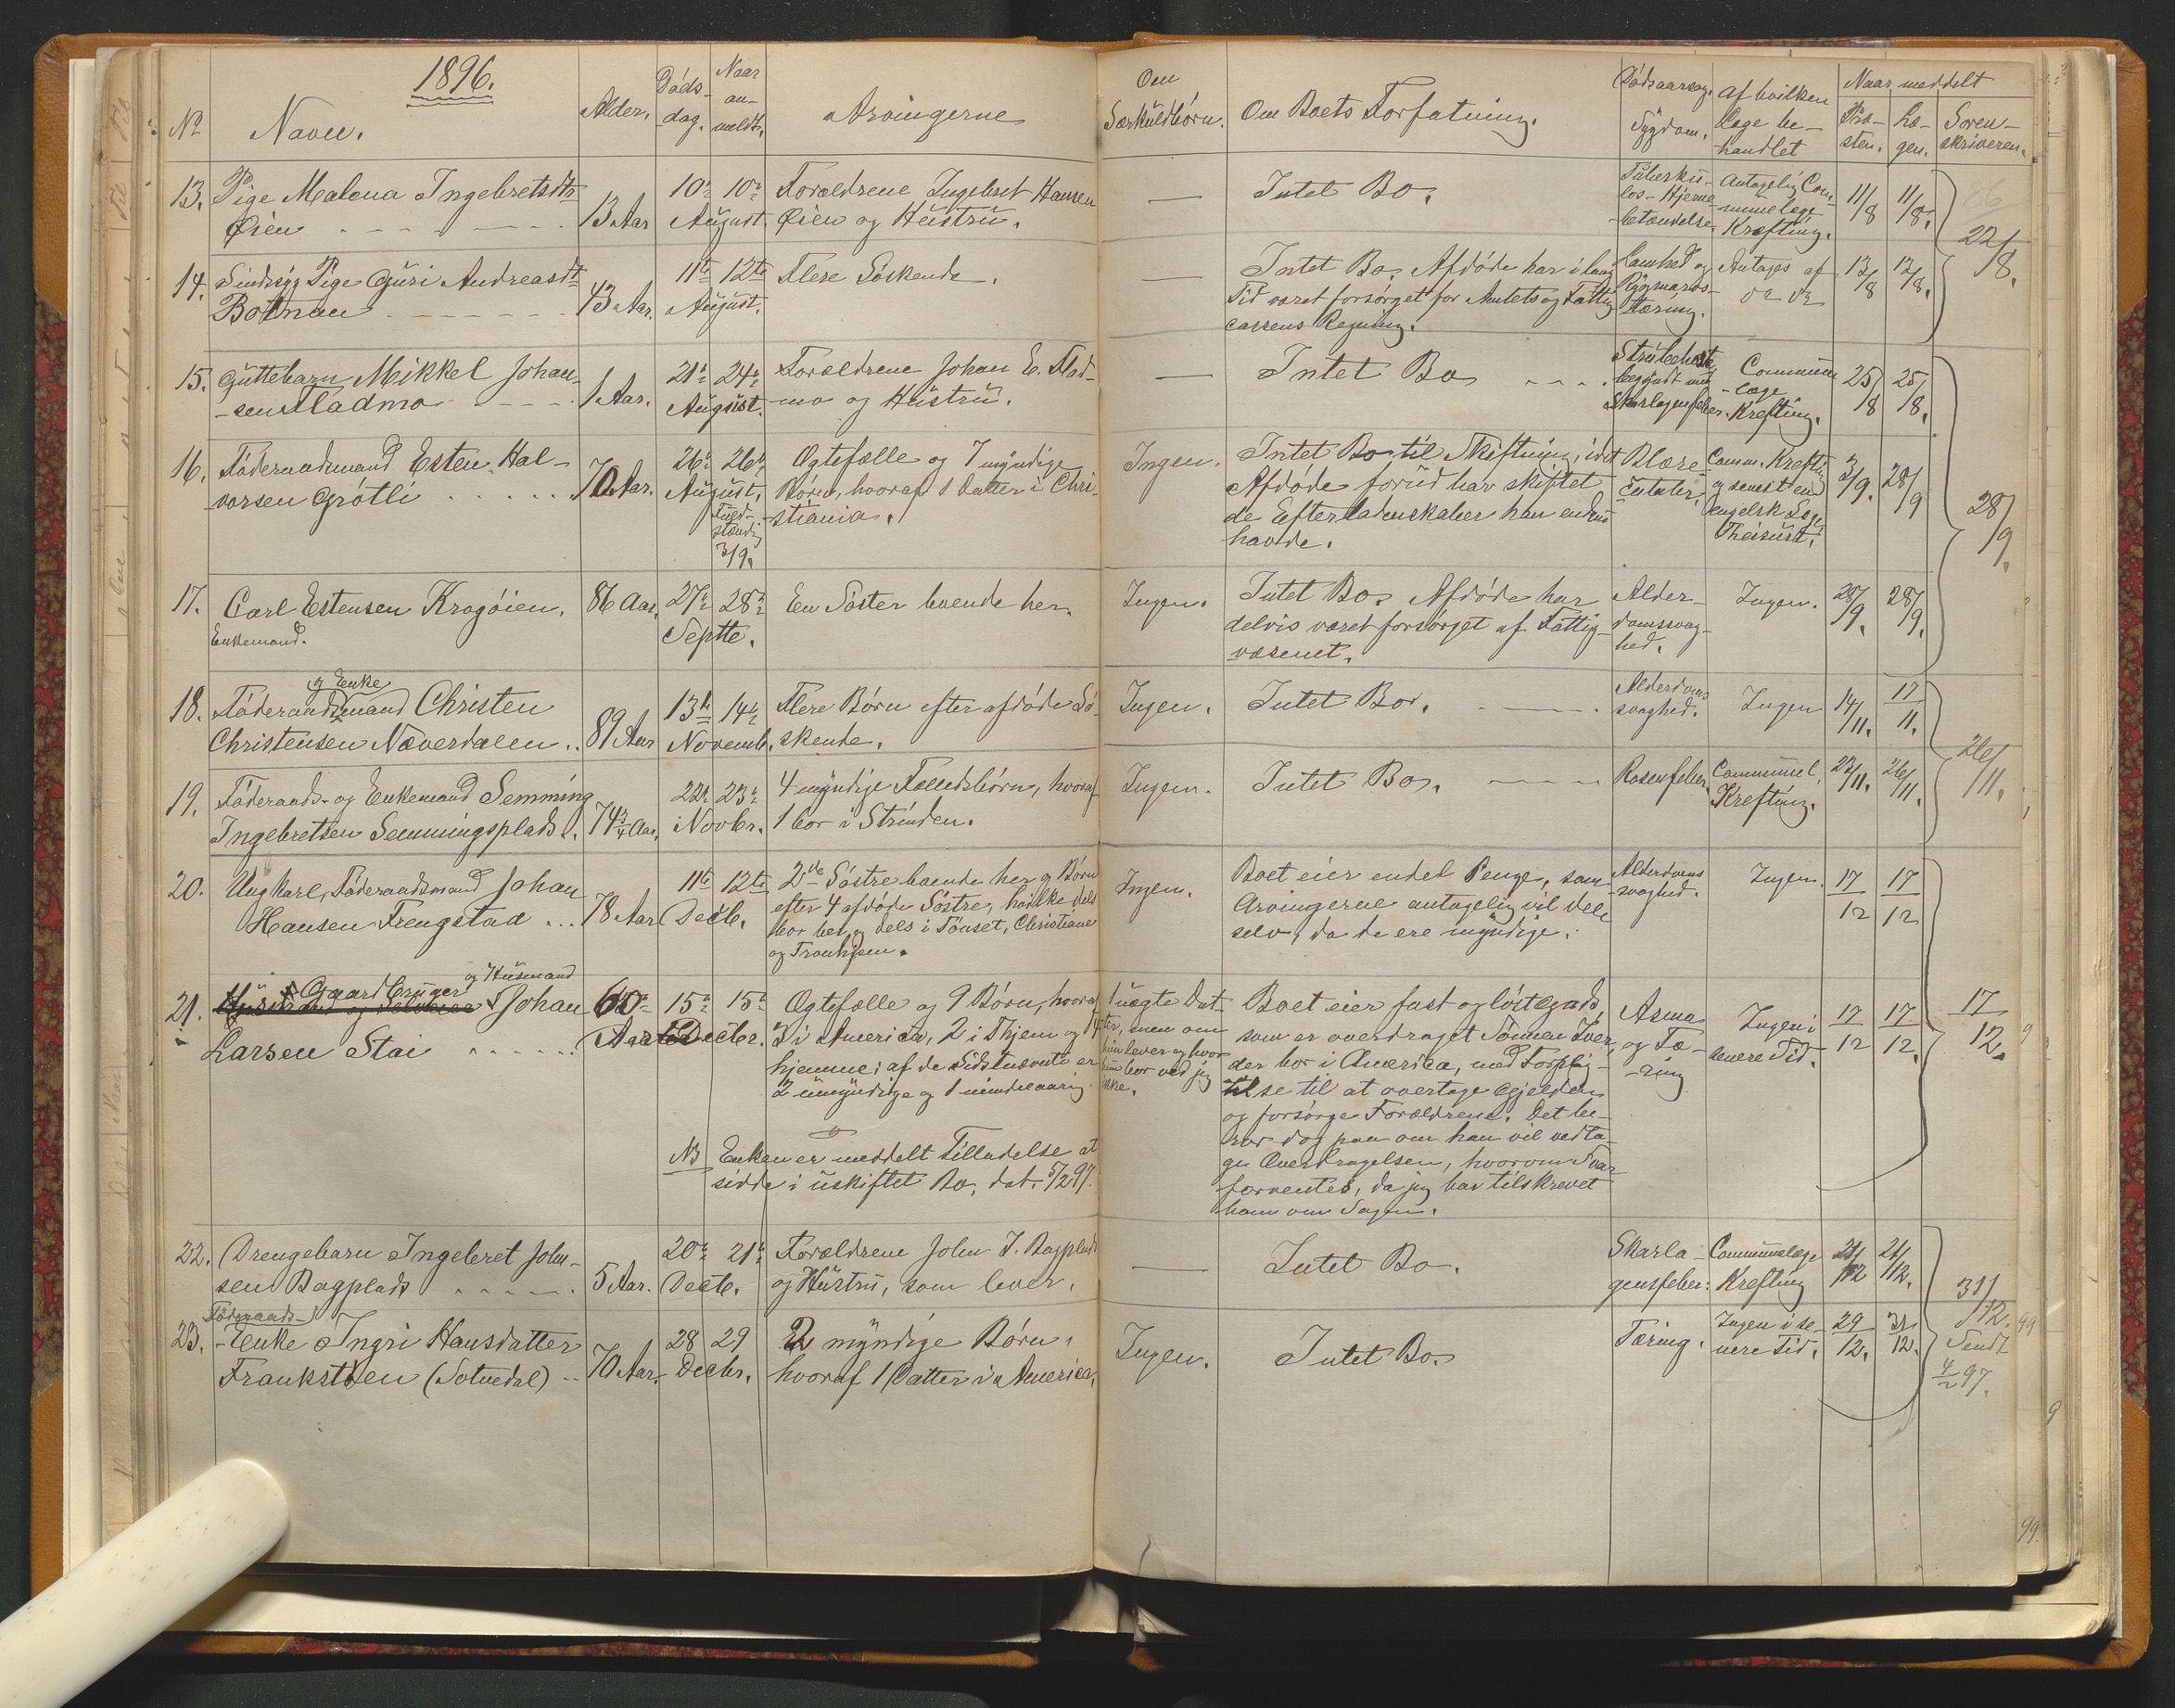 1896.
No Navn. Alder. Døds-dag. Naar an-meldt. Arvingerne Om Særkuldbørn. Om Boets Forfatning. Dødsaarsag. Sygdom. Af hvilken Læge be-handlet Naar meddelt Præ-sten. Læ-gen. Soren-skriveren.
13. Pige Malena Ingebretsdtr
Øien
13 Aar
10de 10de
August.
Forældrene Ingebret Hansen
Øien og Hustru.
—
Intet Bo.
Tuberku-
løs-Hjerne-
betændelse.
Antagelig Com-
munelæge
Krefting.
11/8 11/8.
22/8.
14. Sindssyg Pige Guri Andreasdtr
Botnan
43 Aar.
11te 12te
August.
Flere Søskende.
—
Intet Bo. Afdøde har i lang
Tid været forsørget for Amtets og Fattig-
cassens Regning.
Lamhed og
Rygmarvs-
tæring.
Antages af
do do
12/8 12/8.
15. Guttebarn Mikkel Johan-
-sen Fladmo
1 Aar.
21de 24de
August.
Forældrene Johan E. Flad-
mo og Hustru.
—
Intet Bo
Strubehoste
begyndt med
Skarlagenfeber.
Commune
-læge
Krefting.
25/8 25/8.
16. Føderaadsmand Esten Hal-
vorsen Grøtli
70 Aar.
26de 26de
August.
Fuld-
stændig
3/9.
Ægtefælle og 7 myndige
Børn, hvoraf 1 Datter i Chri-
stiania.
Ingen.
Intet Bo til Skiftning, idet
Afdøde forud har skiftet
de Efterladenskaber han endnu
havde.
Blære-
Catahr.
Comm. Krefting
og senest en
engelsk Læge
3/9. 28/9
28/9.
17. Carl Estensen Krogøien.
Enkemand.
86 Aar.
27de 28de
Septbr.
En Søster boende her.
Ingen.
Intet Bo. Afdøde har
delvis været forsørget af Fattig-
væsenet.
Alder-
domssvag-
hed.
Ingen.
28/9. 28/9.
og Enke
18. Føderaadsmand Christen
Christensen Næverdalen.
89 Aar
13de 14de
Novemb.
Flere Børn efter afdøde Sø-
skende.
Ingen.
Intet Bo.
Alderdoms
svaghed.
Ingen
14/11. 17/11.
26/11.
19. Føderaads- og Enkemand Semming
Ingebretsen Semmingsplads.
74 3/4 Aar.
22de 23de
Novbr.
4 myndige Fælledsbørn, hvoraf
1 bor i Strinden.
Ingen.
Intet Bo.
Rosenfeber.
Communel.
Krefting.
23/11. 26/11.
20. Ungkarl, Føderaadsmand Johan
Hansen Frengstad
78 Aar
11te 12te
Decb.
2de Søstre boende her og Børn
efter 4 afdøde Søstre, hvilke dels
bor her og dels i Tønset, Christiania
og Tronhjem.
Ingen.
Boet eier endel Penge, som
Arvingerne antagelig vil dele
selv, da de ere myndige.
Alderdoms
svaghed.
Ingen.
17/12 17/12
og Husmand
Gaardbruger
21. Johan
Larsen Stai
60
Aar
15de 15de
Decbr.
Ægtefælle og 9 Børn, hvoraf
3 i America, 2 i Thjem og 4
hjemme; af de sidstnævnte er
2 umyndige og 1 mindreaarig.
1 uægte Dat-
ter, men om
hun lever og hvor
hun bor ved jeg
ikke.
Boet eier fast og løst Gods,
som er overdraget Sønnen Iver,
der bor i America, med Forplig-
telse til at overtage Gjelden
og forsørge Forældrene. Det be-
ror dog paa om han vil vedta-
ge Overdragelsen, hvorom Svar
forventes, da jeg har tilskrevet
ham om Sagen.
Asma
og Tæ-
-ring
Ingen i
senere Tid.
17/12 17/12.
17/12.
NB Enken er meddelt Tilladelse at
sidde i uskiftet Bo, dat. 5/2 97.
22. Drengebarn Ingebret John-
sen Bagplads
5 Aar.
20de 21de
Decb.
Forældrene John J. Bagplads
og Hustru, som lever.
—
Intet Bo.
Skarla-
gensfeber.
Communelæge
Krefting
21/12 21/12.
31/12.
Sendt
4/2 97.
Føderaads-
23. -Enke Ingri Hansdatter
Frankstøen (Sotnedal)
70 Aar.
28 29
Decbr.
2 myndige Børn,
hvoraf 1 Datter i America.
Ingen.
Intet Bo.
Tæring.
Ingen i se-
nere Tid.
29/12. 31/12.